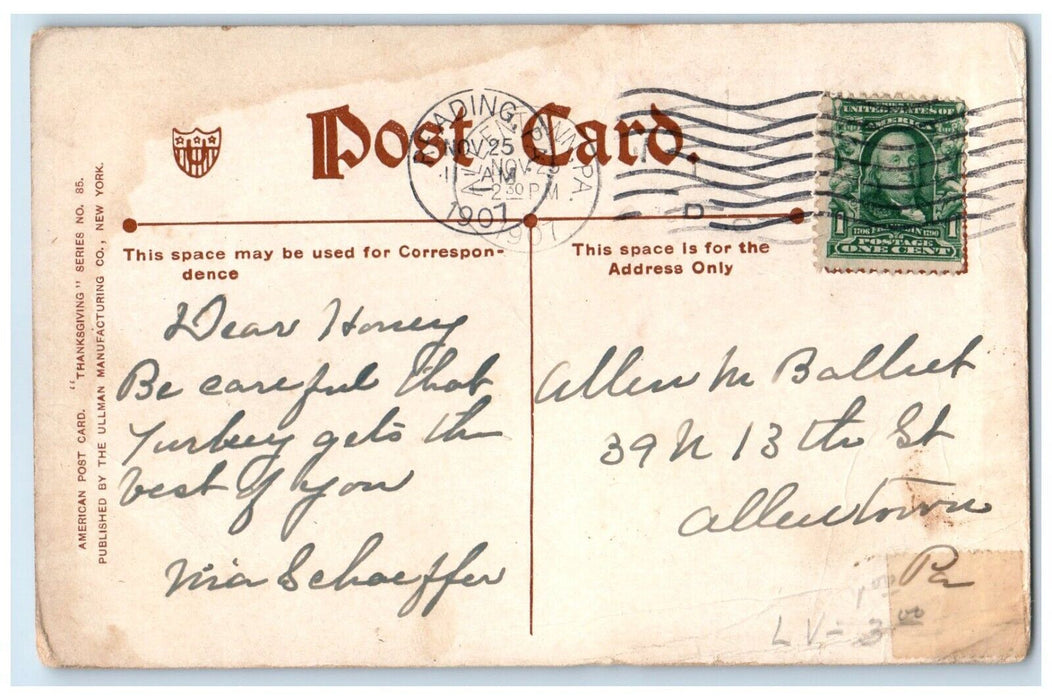 AMERICAN POST CARD. "THANKSGIVING" SERIES NO. 85.
PUBLISHED BY THE ULLMAN MANUFACTURING CO., NEW YORK.
Post Card.
READING, PA.
NOV 25
11 AM
1907
ALLENTOWN PA.
NOV 25
2 30 PM
1907
UNITED STATES OF
AMERICA
1706 FRANKLIN 1790
1 POSTAGE 1
ONE CENT
This space may be used for Correspon-
dence
Dear Honey
Be careful that
Turkey gets the
best of you
Schaeffer
This space is for the
Address Only
Allen M Balliet
39 N 13th St
Allentown
Pa
LV- 3 00